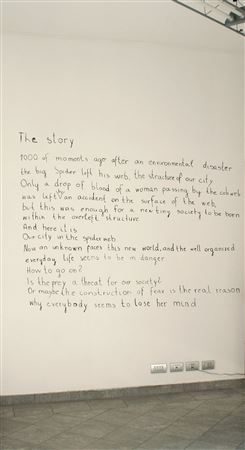 The story
1000 of moments ago after an environmental disaster
the big Spider left his web, the structure of our city.
Only a drop of blood of a woman passing by the cobweb
was left by an accident on the surface of the web,
but this was enough for a new tiny society to be born
within the overleft structure.
And here it is
Our city in the spiderweb
Now an unknown paces this new world, and the well organized
everyday life seems to be in danger.
How to go on?
Is the prey a threat for our society?
Or maybe the construction of fear is the real reason
why everybody seems to lose her mind